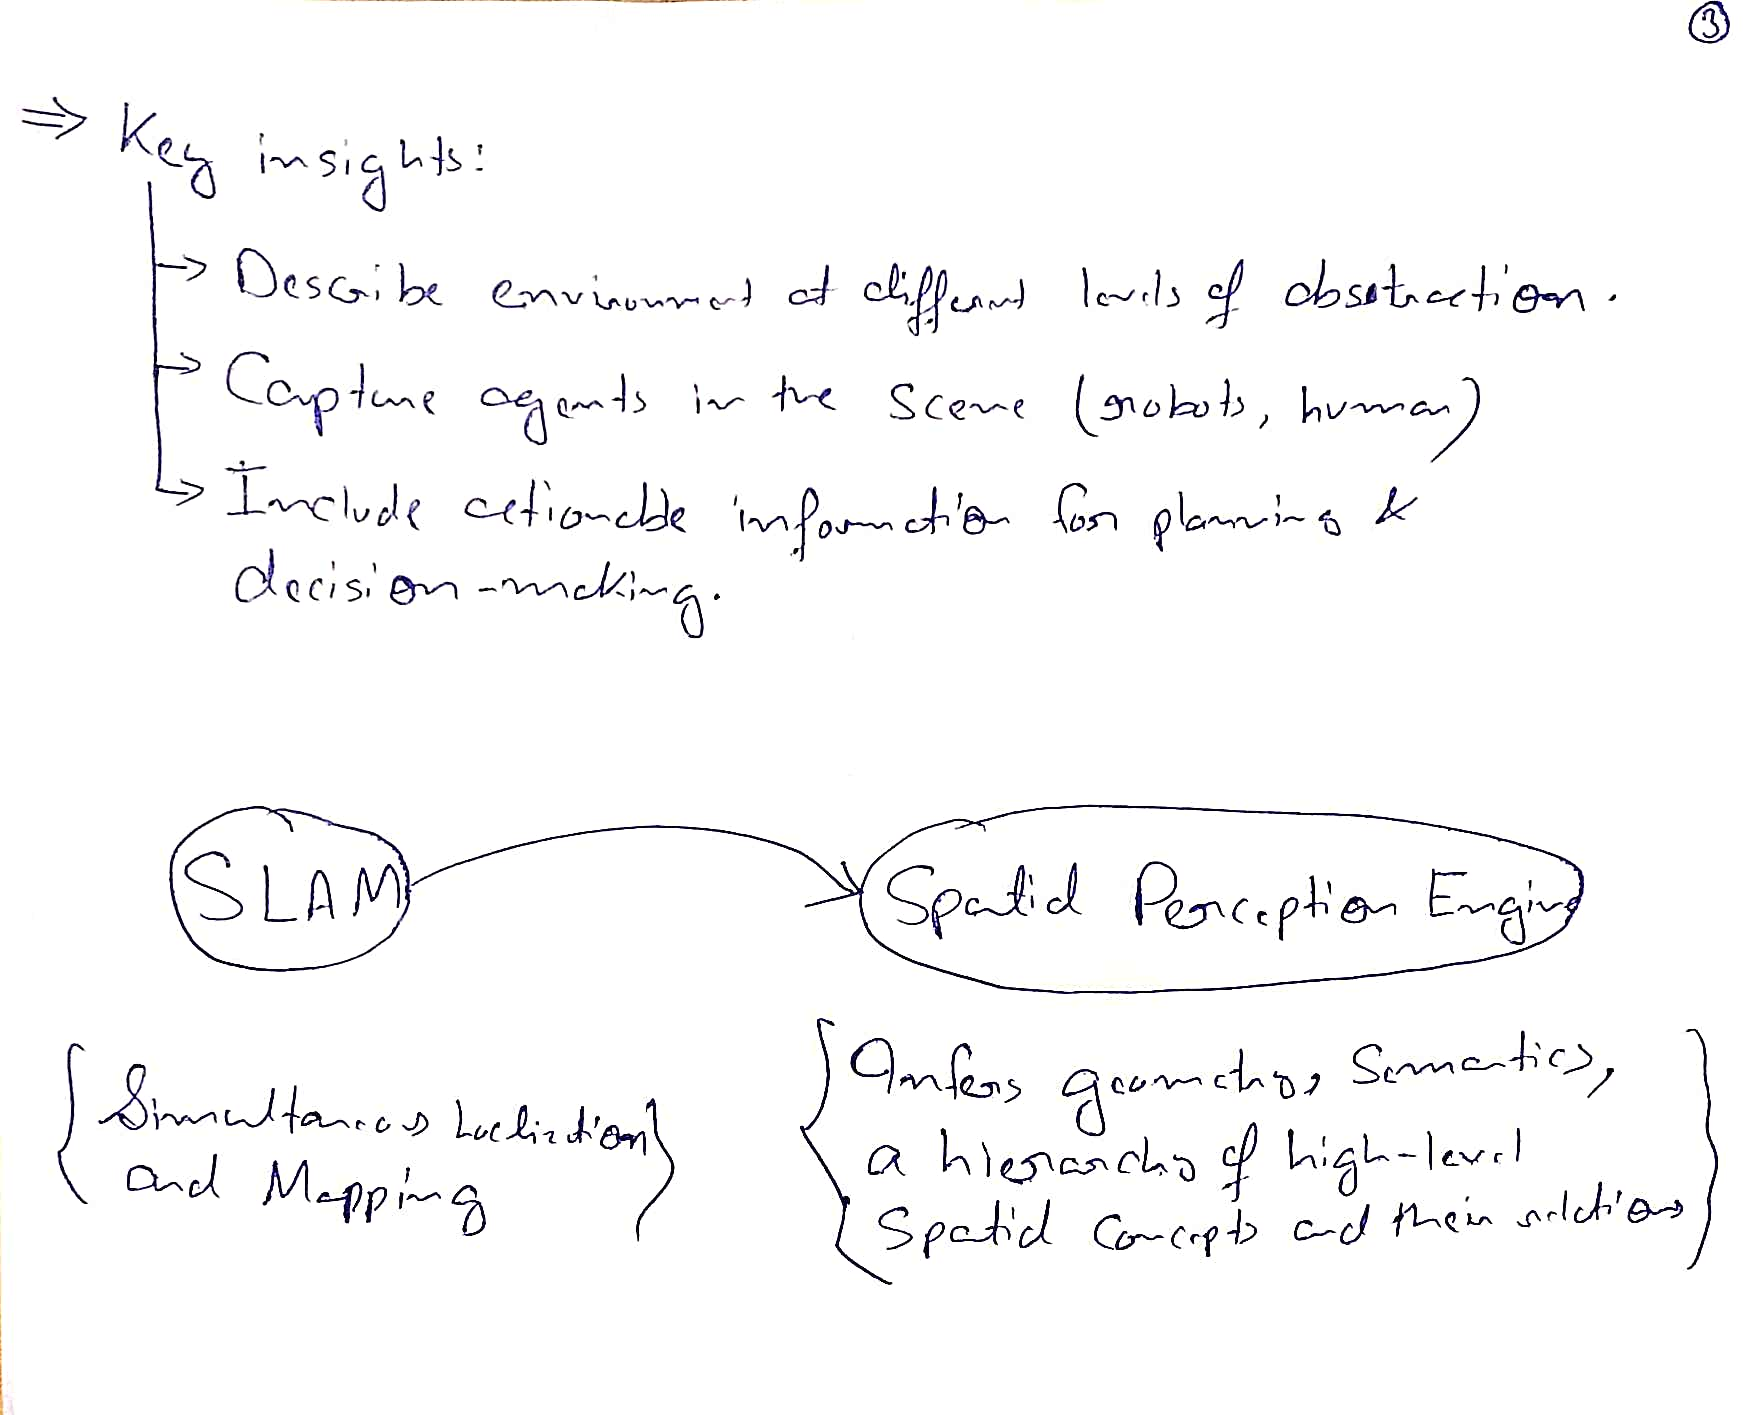 ③
⇒ Key insights:
→ Describe environment at different levels of abstraction.
→ Capture agents in the scene (robots, human)
→ Include actionable information for planning &
decision-making.
SLAM
Spatial Perception Engine
{ Simultaneous Localization
and Mapping }
{ Infers geometry, Semantics,
a hierarchy of high-level
Spatial Concepts and their relations }